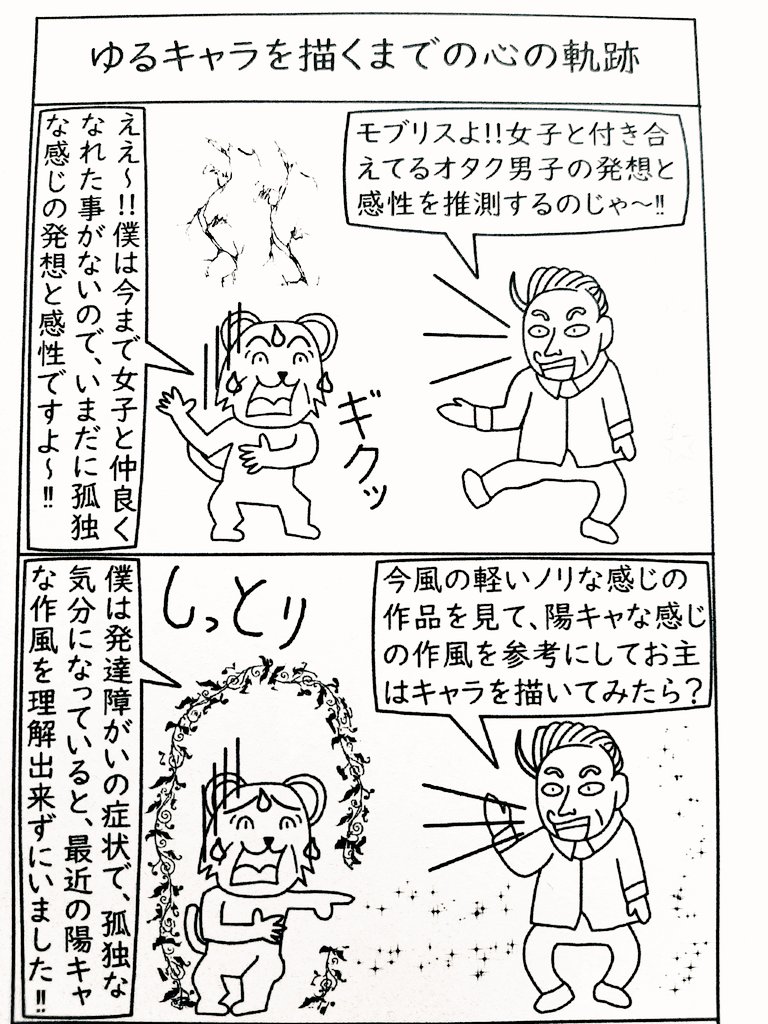 ゆるキャラを描くまでの心の軌跡
モブリスよ!!女子と付き合
えてるオタク男子の発想と
感性を推測するのじゃ〜!!
ええ〜!!僕は今まで女子と仲良く
なれた事がないので、いまだに孤独
な感じの発想と感性ですよ〜!!
ギクッ
今風の軽いノリな感じの
作品を見て、陽キャな感じ
の作風を参考にしてお主
はキャラを描いてみたら?
しっとり
僕は発達障がいの症状で、孤独な
気分になっていると、最近の陽キャ
な作風を理解出来ずにいました!!